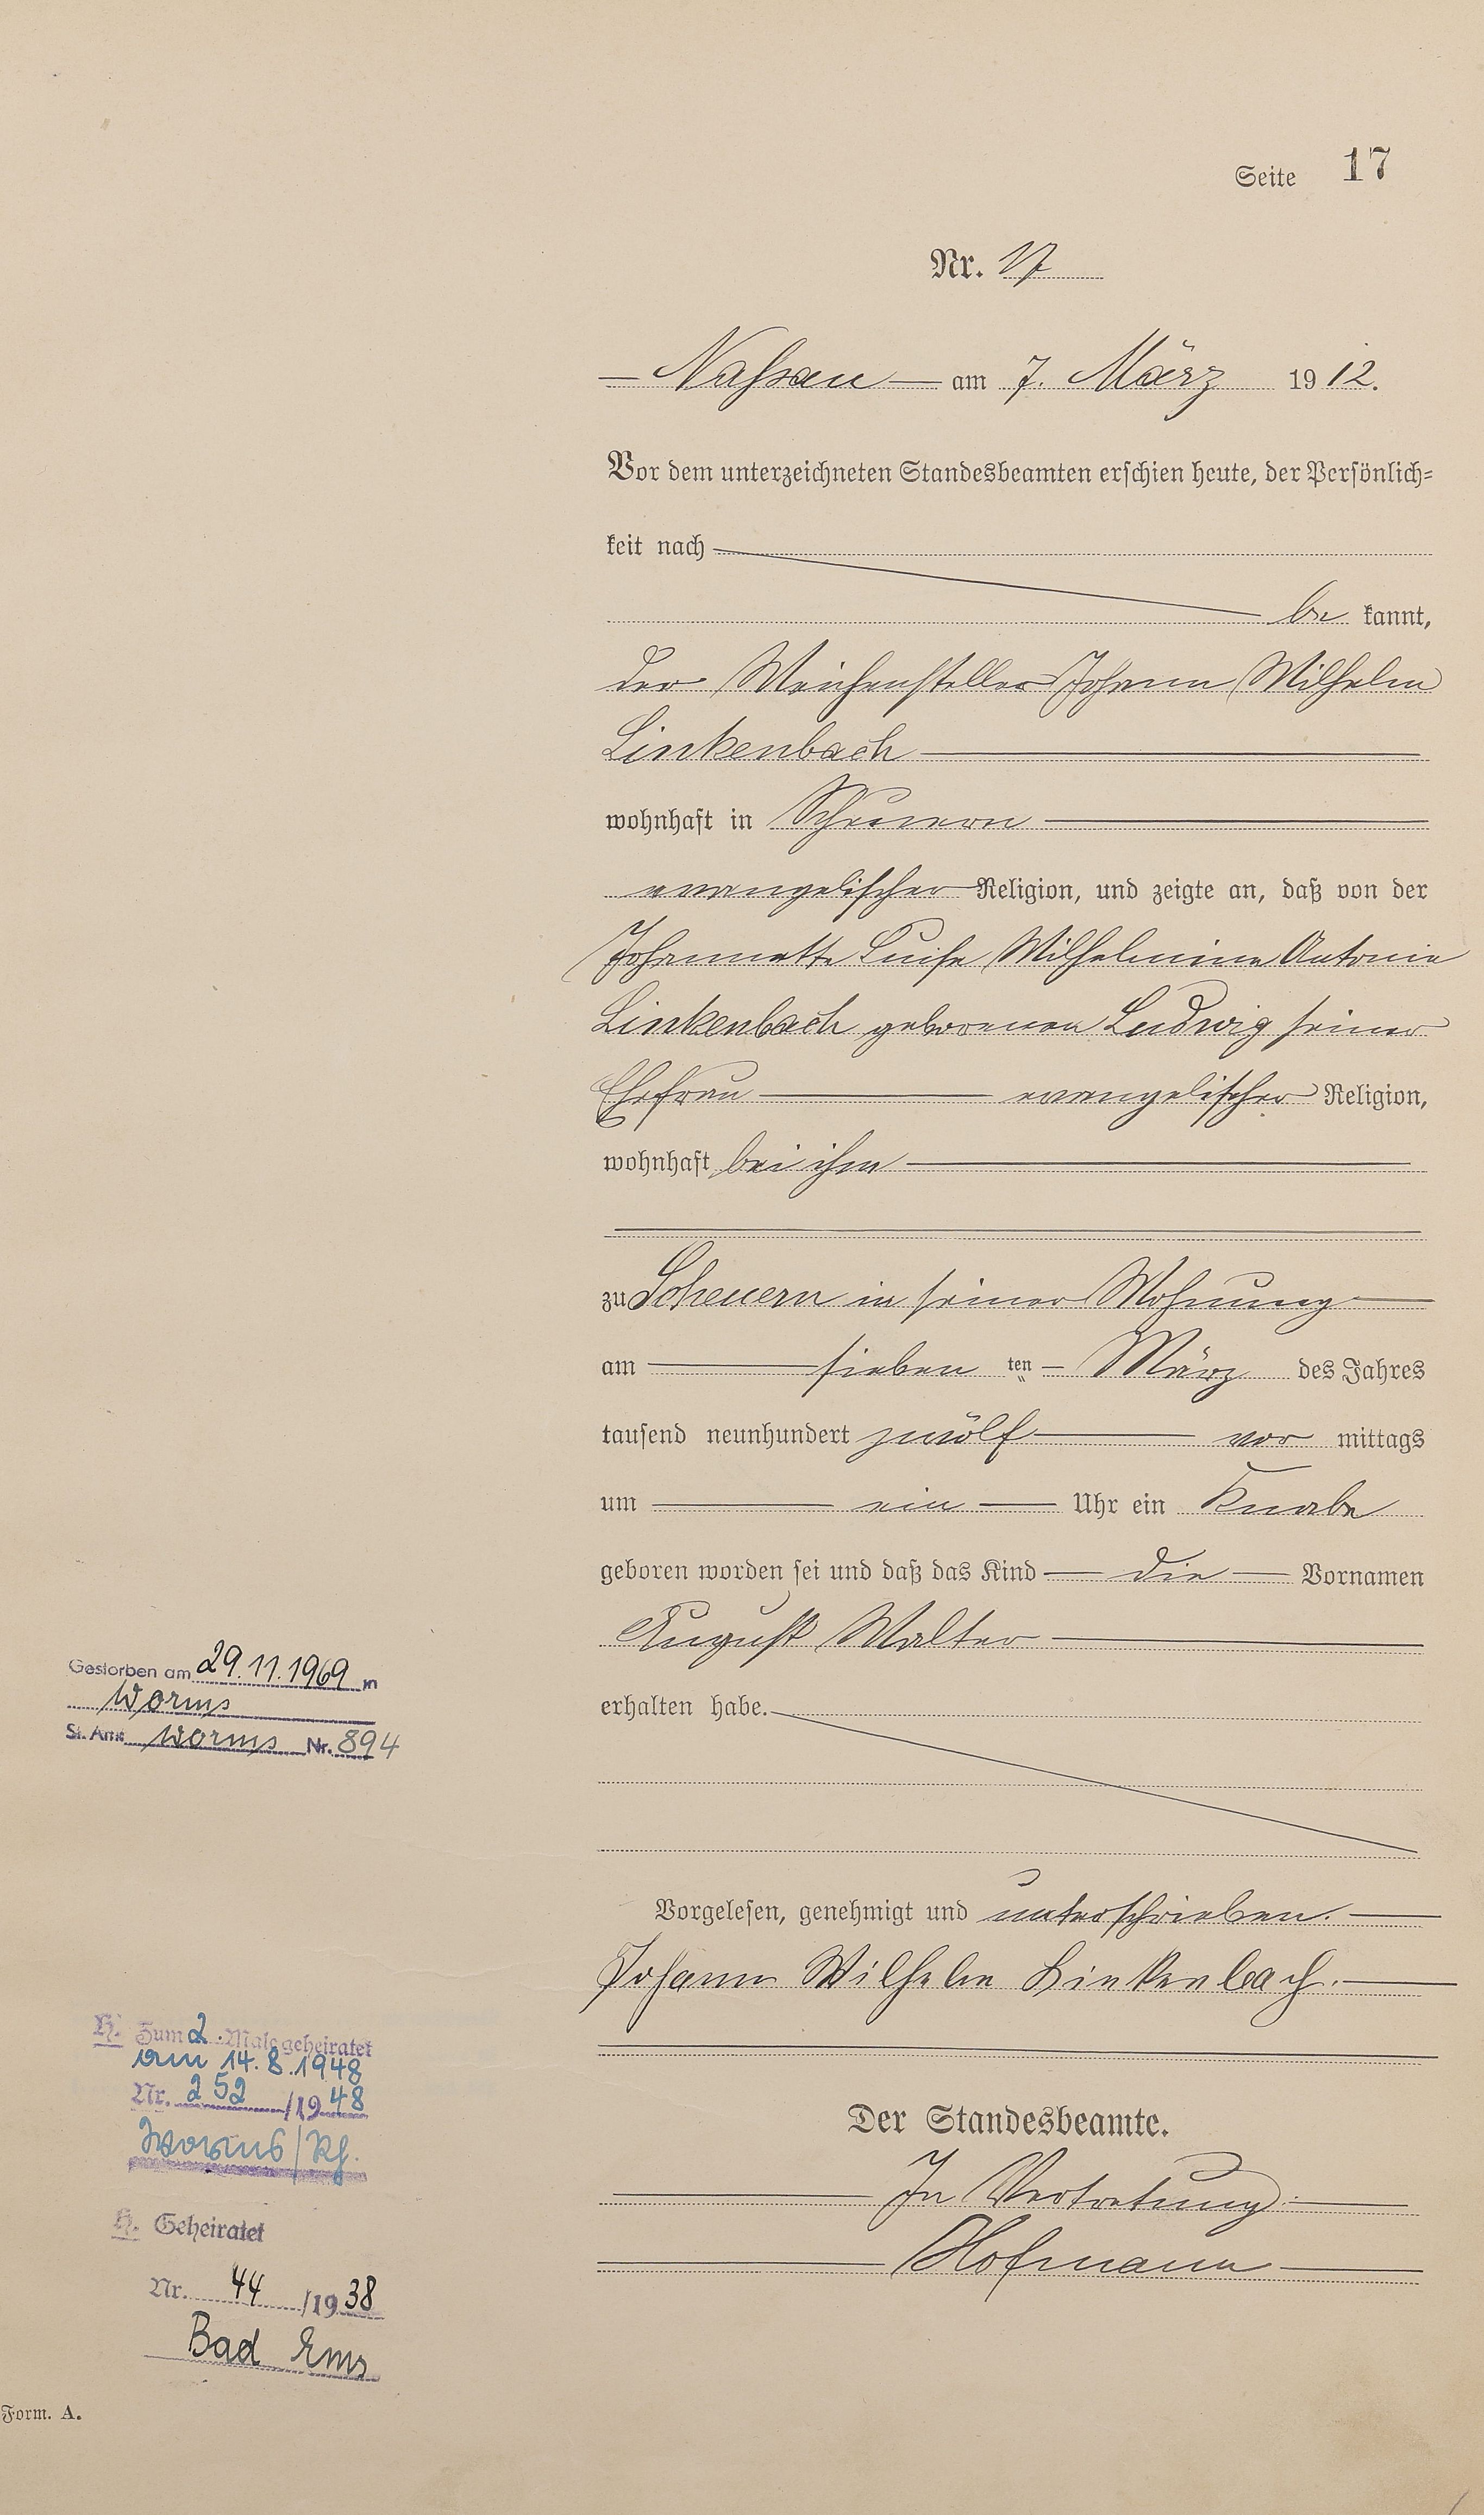 Seite 17
Nr. 17
Nassau am 7. März 1912.
Vor dem unterzeichneten Standesbeamten erschien heute, der Persönlich=
keit nach
be kannt,
der Weichensteller Johann Wilhelm
Linkenbach
wohnhaft in Scheuern
evangelischer Religion, und zeigte an, daß von der
Johannette Luise Wilhelmine Antonie
Linkenbach geborenen Ludwig seiner
Ehefrau evangelischer Religion,
wohnhaft bei ihm
zu Scheuern in seiner Wohnung
am sieben ten März des Jahres
tausend neunhundert zwölf vor mittags
um ein Uhr ein Knabe
geboren worden sei und daß das Kind die Vornamen
August Walter
erhalten habe.
Vorgelesen, genehmigt und unterschrieben.
Johann Wilhelm Linkenbach.
Der Standesbeamte.
In Vertretung:
Hofmann
Gestorben am 29.11.1969 in
Worms
St. Amt Worms Nr. 894
H. Zum 2. Male geheiratet
am 14.8.1948
Nr. 252 /1948
Worms/Rh.
H. Geheiratet
Nr. 44 /1938
Bad Ems
Form. A.